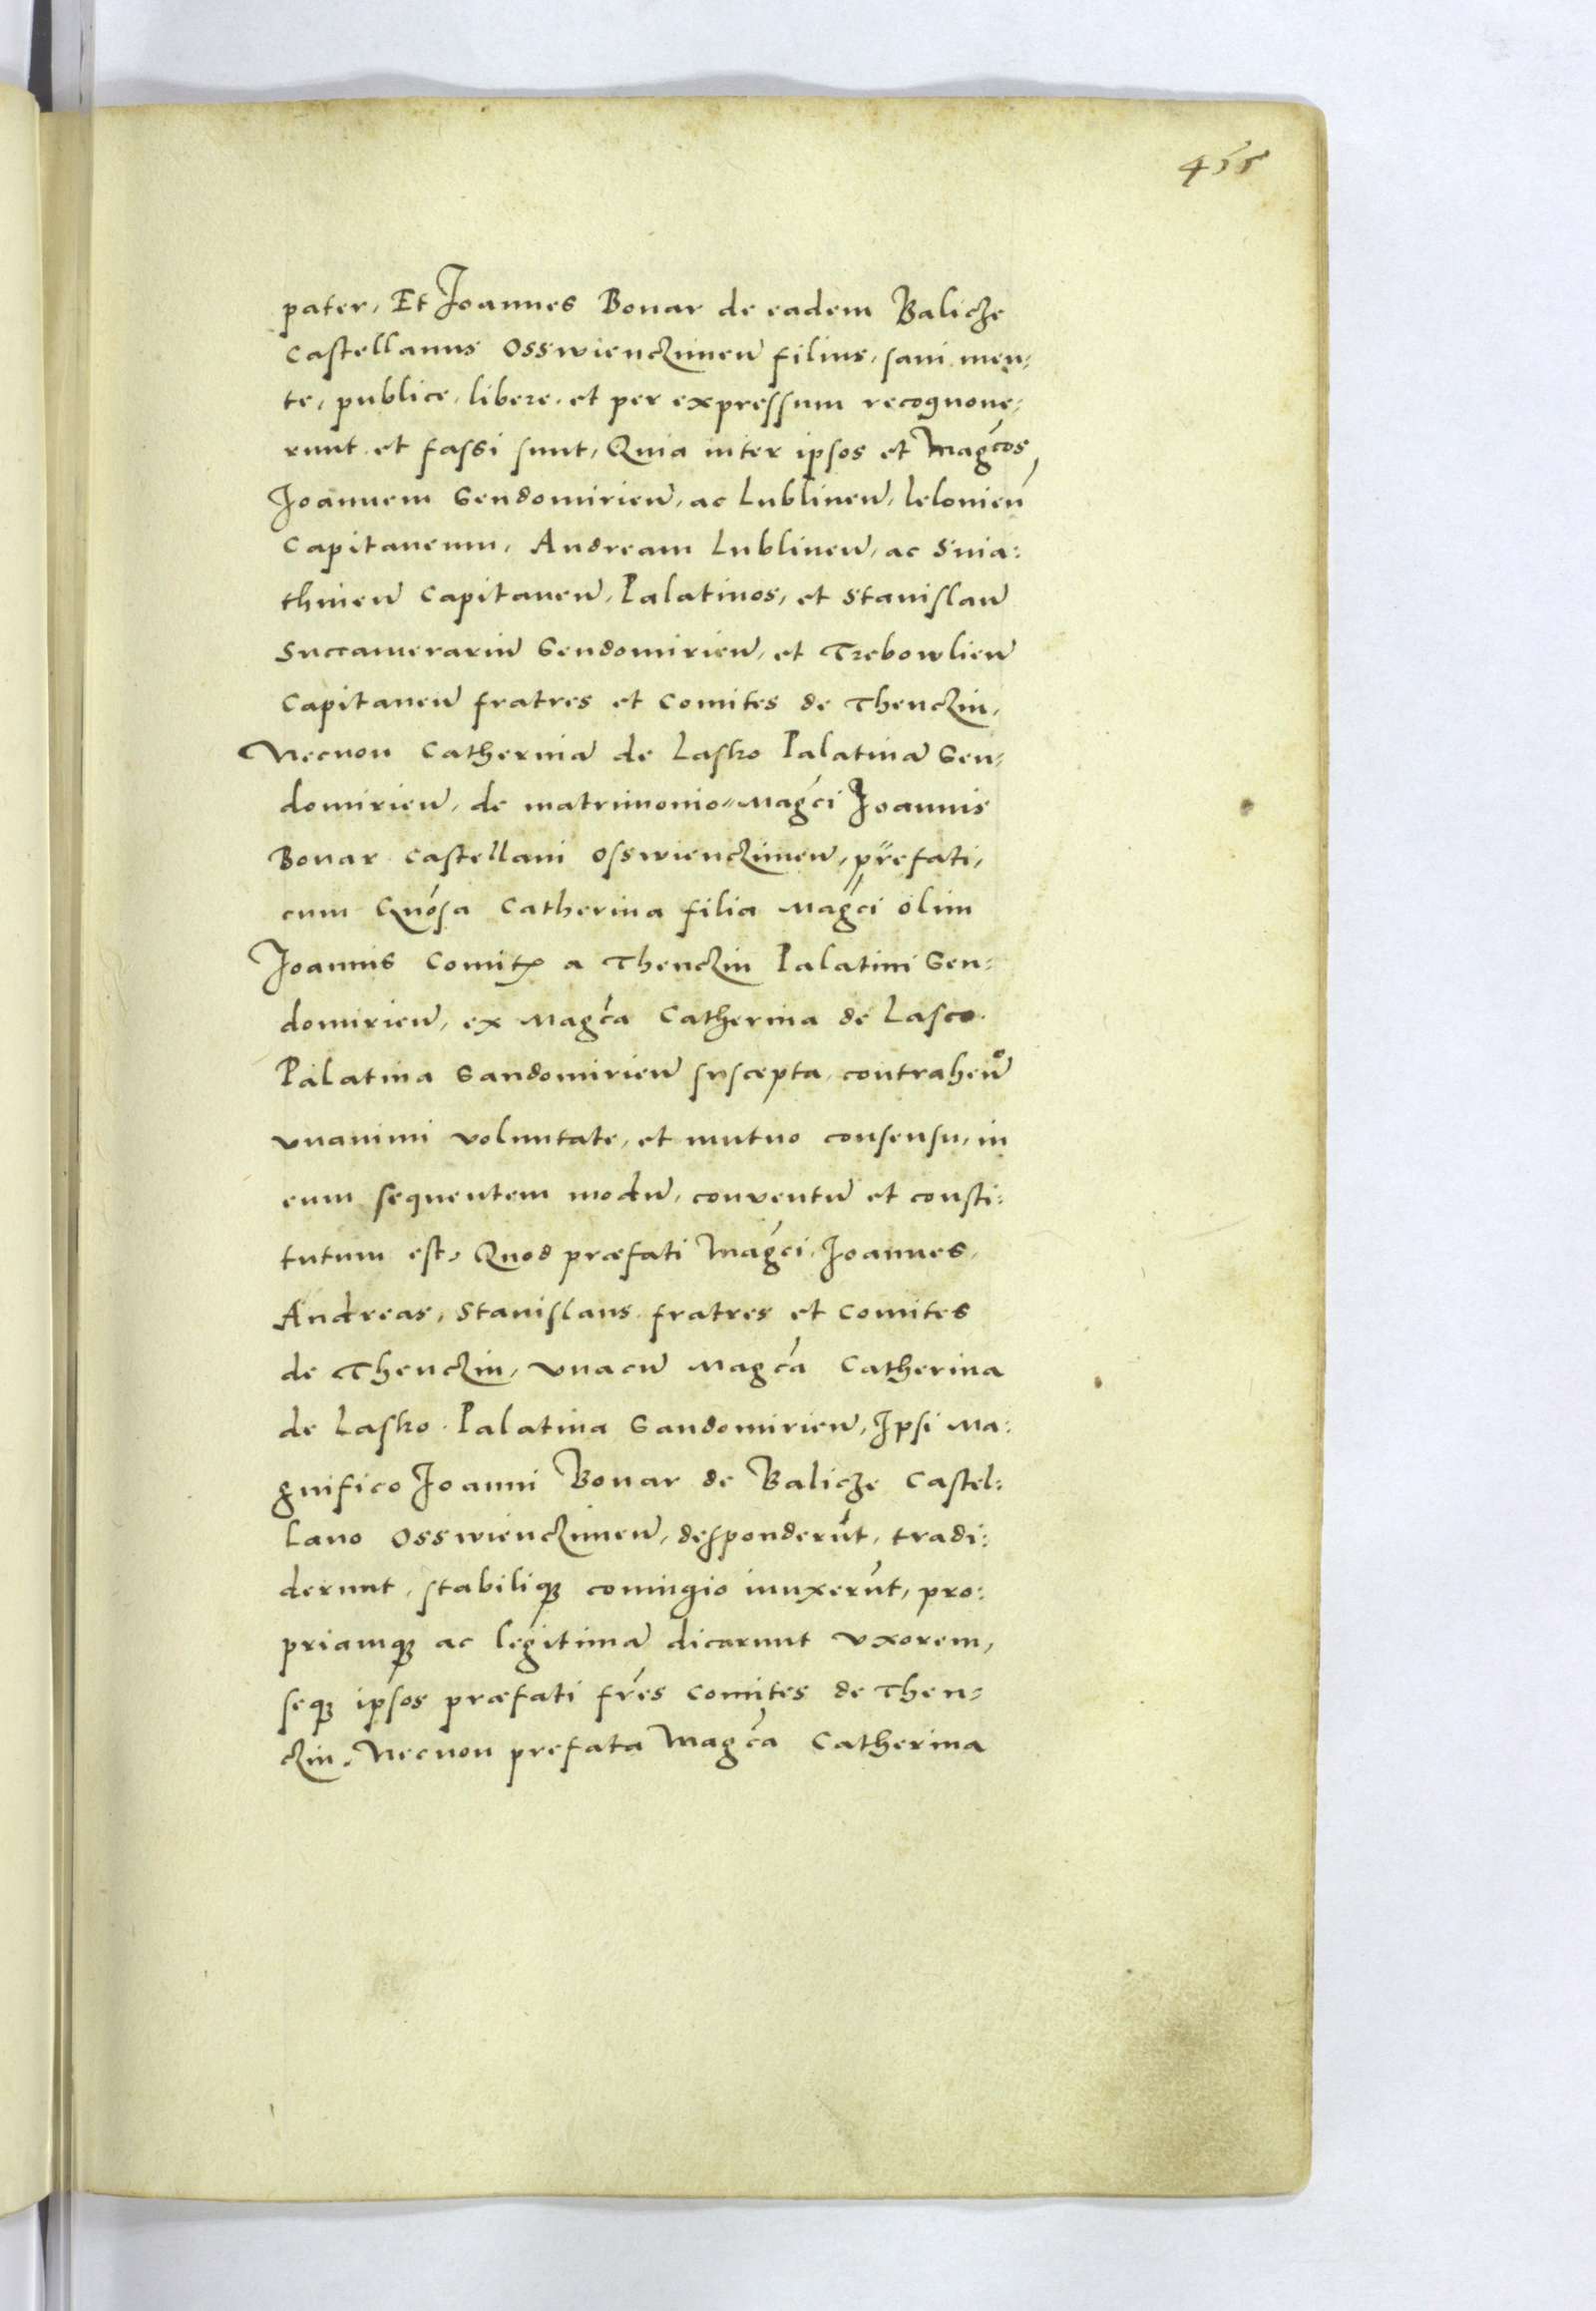 455
pater, Et Joannes Bonar de eadem Balicze
Castellanus Osswienczimen̄ filius, sani men:
te, publice, libere, et per expressum recognoue:
runt et fassi sunt, Quia inter ipsos et Mag̃cos
Joannem Sendomirien̄, ac Lublinen̄, lelonien̄
Capitaneum, Andream Lublinen̄, ac Snia:
thinen̄ Capitaneū, Palatinos, et Stanislaū
Succamerariū Sendomirien̄, et Trebowlien̄
Capitaneū fratres et Comites de Thenczin,
Necnon Catherinā de Lasko Palatinā Sen:
domirien̄, de matrimonio Mag̃ci Joannis
Bonar Castellani Osswienczimen̄, prefati,
cum G̃nosa Catherina filia Mag̃ci olim
Joannis Comitꝭ a Thenczin Palatini Sen:
domirien̄, ex Mag̃ca Catherina de Lasco
Palatina Sandomirien̄ suscepta, contrahen̄º
vnanimi voluntate, et mutuo consensu, in
eum sequentem modū, conventū et consti:
tutum est, Quod præfati Mag̃ci, Joannes,
Andreas, Stanislaus fratres et Comites
de Thenczin, vnacū Mag̃ca Catherina
de Lasko Palatina Sandomirien̄, Ipsi Ma:
gnifico Joanni Bonar de Balicze Castel:
lano Osswienczimen̄, desponderūt, tradi:
derunt, stabiliqꝫ coniugio iunxerūt, pro:
priamqꝫ ac legitimā dicarunt vxorem,
seqꝫ ipsos præfati fr̃es Comites de Then:
czin, Necnon prefata Mag̃ca Catherina